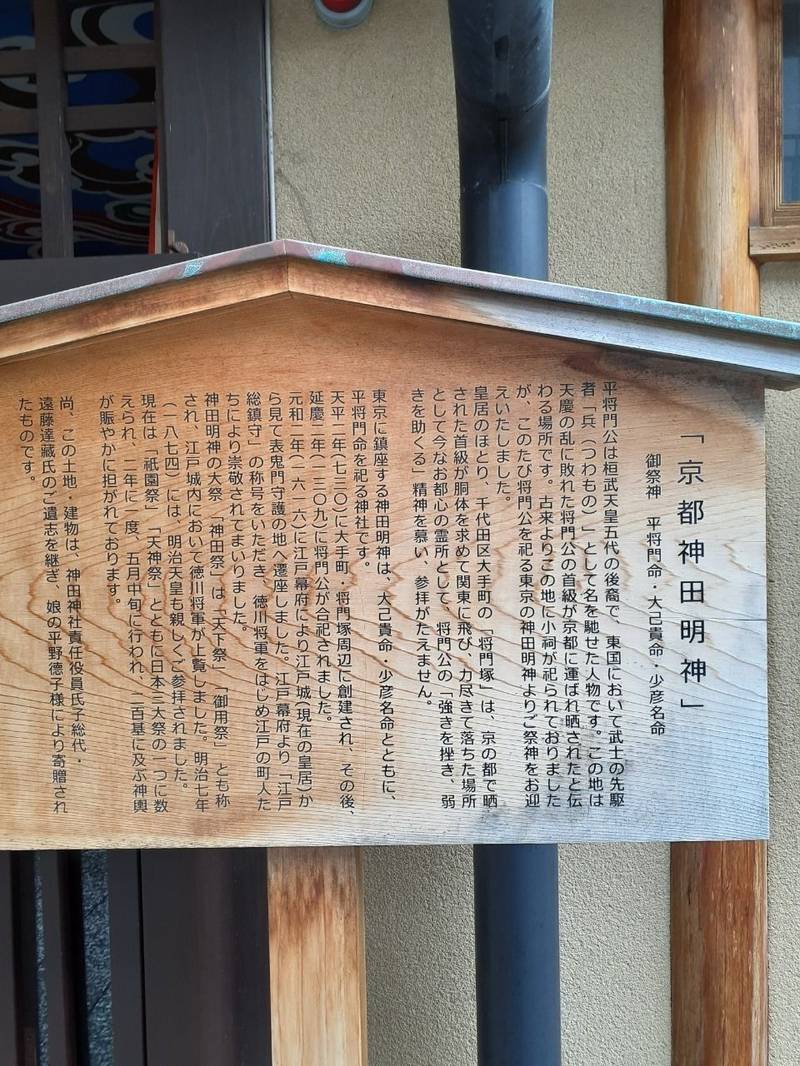 「京都神田明神」
御祭神　平将門命・大己貴命・少彦名命
平将門公は桓武天皇五代の後裔で、東国において武士の先駆
者「兵（つわもの）」として名を馳せた人物です。この地は
天慶の乱に敗れた将門公の首級が京都に運ばれ晒されたと伝
わる場所です。古来よりこの地に小祠が祀られておりました
が、このたび将門公を祀る東京の神田明神よりご祭神をお迎
えいたしました。
皇居のほとり、千代田区大手町の「将門塚」は、京の都で晒
された首級が胴体を求めて関東に飛び、力尽きて落ちた場所
として今なお都心の霊所として、将門公の「強きを挫き、弱
きを助くる」精神を慕い、参拝がたえません。
東京に鎮座する神田明神は、大己貴命・少彦名命とともに、
平将門命を祀る神社です。
天平二年(七三〇)に大手町・将門塚周辺に創建され、その後、
延慶二年(一三〇九)に将門公が合祀されました。
元和二年(一六一六)に江戸幕府により江戸城(現在の皇居)か
ら見て表鬼門守護の地へ遷座しました。江戸幕府より「江戸
総鎮守」の称号をいただき、徳川将軍をはじめ江戸の町人た
ちにより崇敬されてまいりました。
神田明神の大祭「神田祭」は「天下祭」「御用祭」とも称
され、江戸城内において徳川将軍が上覧しました。明治七年
(一八七四)には、明治天皇も親しくご参拝されました。
現在は「祇園祭」「天神祭」とともに日本三大祭の一つに数
えられ、二年に一度、五月中旬に行われ、二百基に及ぶ神輿
が賑やかに担がれております。
尚、この土地・建物は、神田神社責任役員氏子総代・
遠藤達藏氏のご遺志を継ぎ、娘の平野徳子様により寄贈され
たものです。